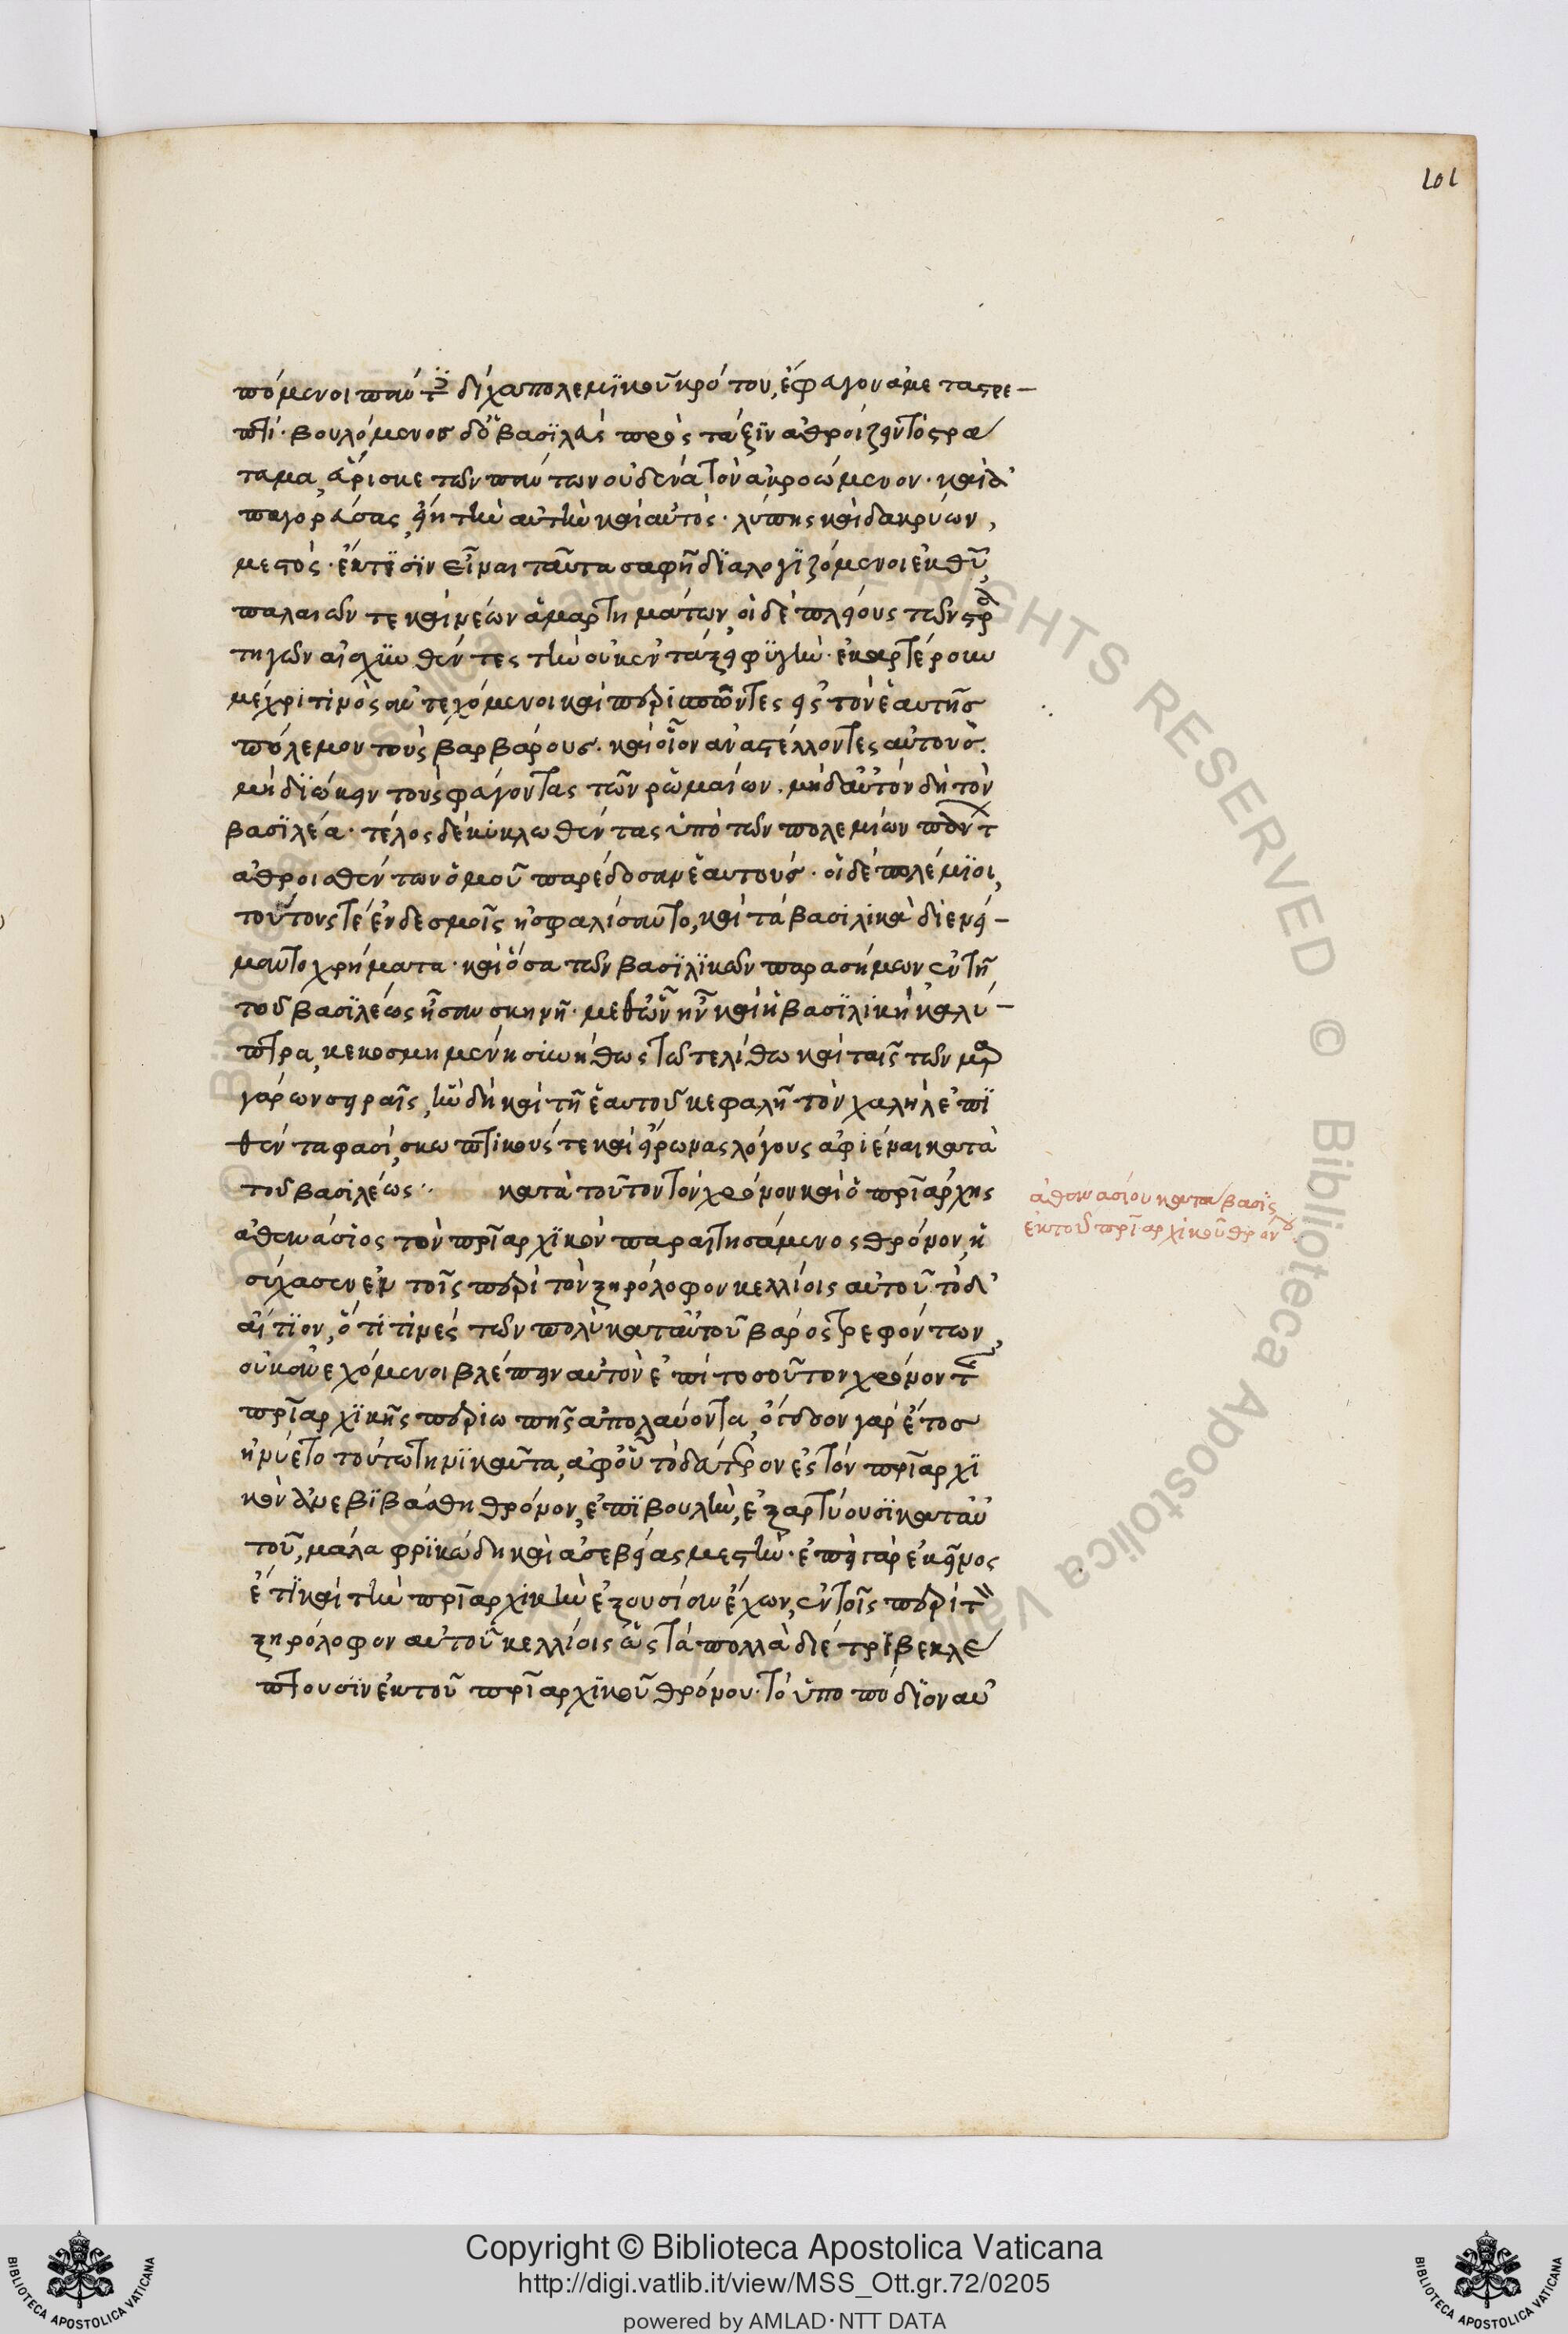 101
πόμενοι πάντες δίχα πολεμϊκοῦ κρότου, ἔφευγον ἀμεταστρε-
πτί. βουλόμενος δ᾽ ὁ βασϊλεὺς πρὸς τάξϊν ἀθροίζειν τὸ στρα
τευμα, εὕρισκε τῶν πάντων οὐδένα τὸν ἀκροώμενον. καὶ ἀ
παγορεύσας, ᾔει τὴν αὐτὴν καὶ αὐτὸς. λύπης καὶ δακρύων,
μεστὸς. ἔκτϊσϊν εἶναι ταῦτα σαφῆ δϊαλογϊζόμενοι ἐκ θῦ,
παλαιῶν τε καὶ νέων ἁμαρτημάτων, οἱ δὲ πλείους τῶν στρα
τηγῶν αἰσχυνθέντες τὴν οὐκ ἐν τάξει φϋγὴν. ἐκαρτέρουν
μέχρι τινὸς ἀντεχόμενοι καὶ περισπῶντες εἰς τὸν ἑαυτῆς
πόλεμον τοὺς βαρβάρους. καὶ οἷον ἀναστέλλοντες αὐτοὺς.
μὴ δϊώκειν τοὺς φεύγοντας τῶν ῥωμαίων. μὴδ αὐτὸν δὴ τὸν
βασϊλέα. τέλος δὲ κυκλωθέντας ὑπὸ τῶν πολεμίων πάντ
ἀθροισθέντων ὁμοῦ παρέδοσαν ἑαυτούς. οἱ δὲ πολέμϊοι,
τούτους τὲ ἐν δεσμοῖς ἠσφαλίσαντο, καὶ τὰ βασιλικὰ διενεί-
μαντο χρήματα. καὶ ὅσα τῶν βασϊλϊκῶν παρασήμων ἐν τῆ
τοῦ βασϊλέως ἦσαν σκηνῆ. μεθ ὧν ἦν καὶ ἡ βασϊλικὴ καλύ-
πτρα, κεκοσμημένη συνήθως τῶ τε λίθω καὶ ταῖς τῶν μαρ
γάρων σειραῖς, ἣν δὴ καὶ τῆ ἑαυτοῦ κεφαλῆ τὸν χαλὴλ ἐπϊ
θέντα φασὶ, σκωπτικούς τε καὶ εἴρωνας λόγους ἀφιέναι κατὰ
τοῦ βασϊλέως ·. κατὰ τοῦτον τὸν χρόνον καὶ ὁ πρϊάρχης
ἀθανάσϊος τὸν πρϊαρχϊκὸν παραιτησάμενος θρόνον, ἡ
σύχασεν ἐν τοῖς περὶ τὸν ξηρόλοφον κελλίοις αὐτοῦ. τὸ δ᾽
αἴτϊον, ὅτι τινὲς τῶν πολὺ κατ αὐτοῦ βάρος τρεφόντων,
οὐκ ἀνεχόμενοι βλέπειν αὐτὸν ἐπὶ τοσοῦτον χρόνον τ
πρϊαρχϊκῆς περιωπῆς ἀπολαύοντα, ὄγδοον γὰρ ἔτος
ἠνύετο τούτω τηνϊκαῦτα, ἀφ οὗ τὸ δεύτερον εἰς τὸν πρϊαρχϊ
κὸν ἀνεβϊβάσθη θρόνον, ἐπϊβουλὴν, ἐξαρτύουσϊ κατ αὐ
τοῦ, μάλα φρϊκώδη καὶ ἀσεβείας μεστὴν. ἐπεὶ γὰρ ἐκεῖνος
ἔτϊ καὶ τὴν πρϊαρχικὴν ἐξουσίαν ἔχων, ἐν τοῖς περὶ τὸν
ξηρόλοφον αὐτοῦ κελλίοις ὡς τὰ πολλὰ διέτριβε κλέ
πτουσϊν ἐκ τοῦ πρϊαρχϊκοῦ θρόνου. τὸ ὑποπόδϊον αὐ
ἀθανασίου κατάβασϊς
ἐκ τοῦ πρϊαρχικοῦ θρόνου.
ALL RIGHTS RESERVED © Biblioteca Apostolica Vaticana
Copyright © Biblioteca Apostolica Vaticana
http://digi.vatlib.it/view/MSS_Ott.gr.72/0205
powered by AMLAD·NTT DATA
BIBLIOTECA APOSTOLICA VATICANA
BIBLIOTECA APOSTOLICA VATICANA